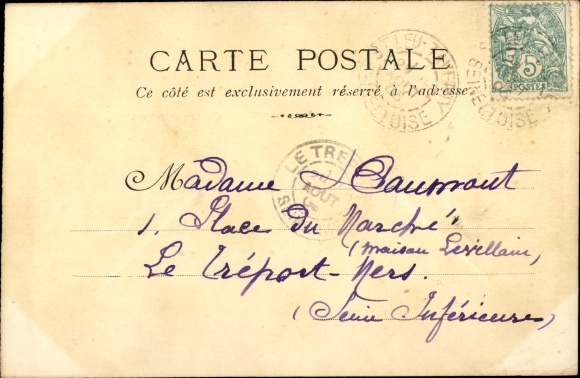 CARTE POSTALE
Ce côté est exclusivement réservé à l'adresse
5
POSTES
SEINE ET OISE
LE TRÉ
AOUT
Madame Caumont
1, Place du Marché
(maison Levillain)
Le Tréport-Mers.
(Seine Inférieure)